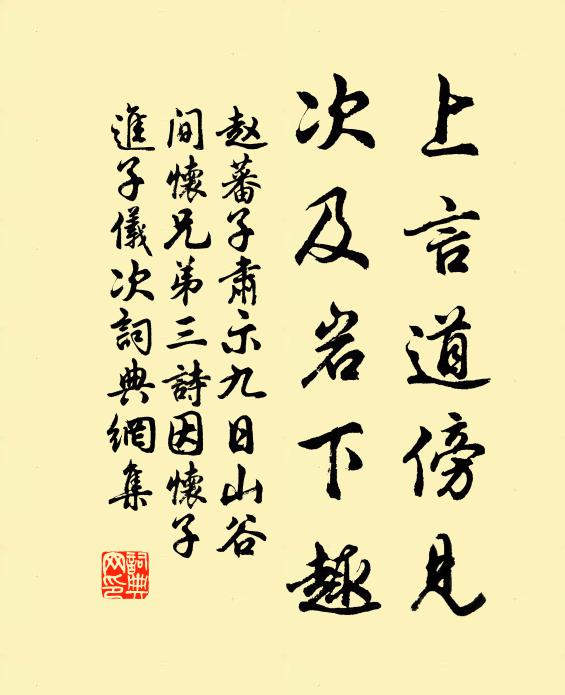 上言道傍見
次及岩下趣
赵蕃子肅示九日山谷
间懷兄弟三詩因懷子
進子儀次詞典網集
詞典网印